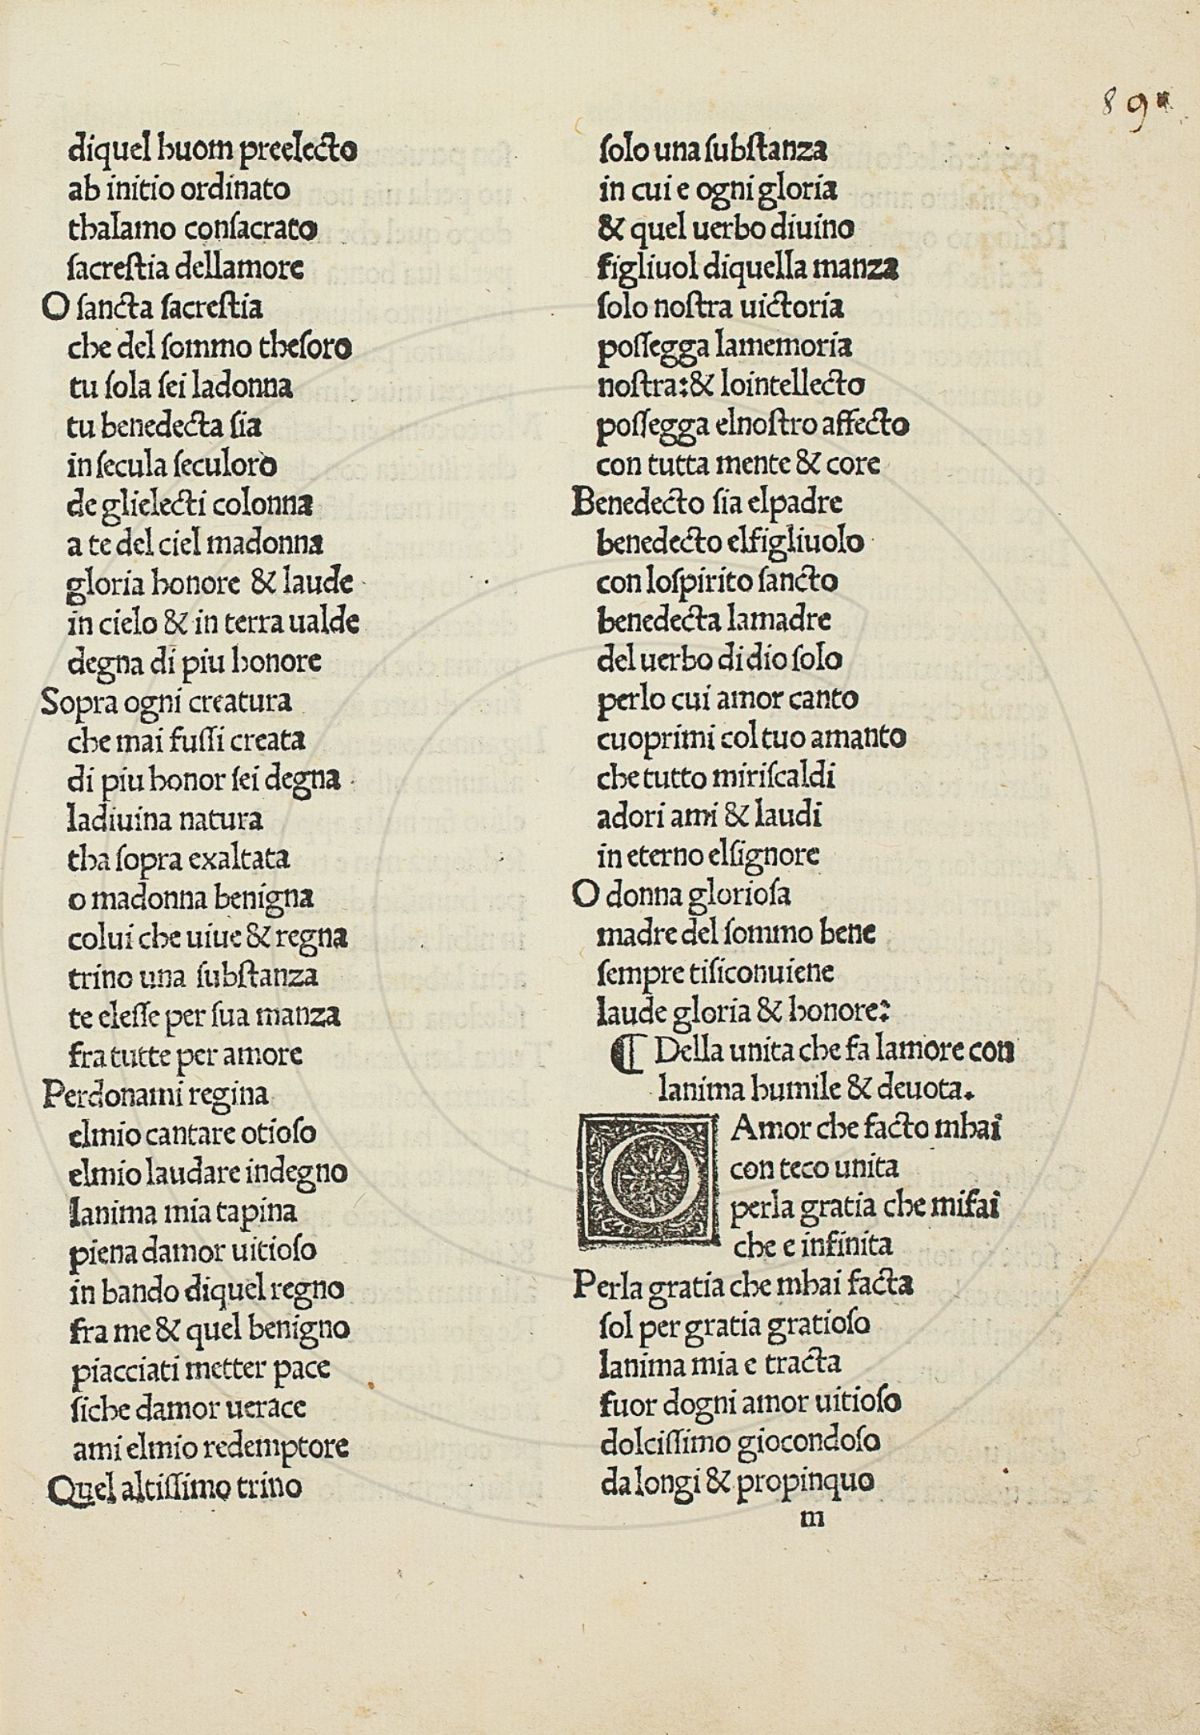 89
diquel huom preelecto
ab initio ordinato
thalamo consacrato
sacrestia dellamore
O sancta sacrestia
che del sommo thesoro
tu sola sei ladonna
tu benedecta sia
in secula seculorò
de glielecti colonna
a te del ciel madonna
gloria honore & laude
in cielo & in terra ualde
degna di piu honore
Sopra ogni creatura
che mai fussi creata
di piu honor sei degna
ladiuina natura
tha sopra exaltata
o madonna benigna
colui che uiue & regna
trino una substanza
te elesse per sua manza
fra tutte per amore
Perdonami regina
elmio cantare otioso
elmio laudare indegno
lanima mia tapina
piena damor uitioso
in bando diquel regno
fra me & quel benigno
piacciati metter pace
siche damor uerace
ami elmio redemptore
Quel altissimo trino
solo una substanza
in cui e ogni gloria
& quel uerbo diuino
figliuol diquella manza
solo nostra uictoria
possegga lamemoria
nostra:& lointellecto
possegga elnostro affecto
con tutta mente & core
Benedecto sia elpadre
benedecto elfigliuolo
con lospirito sancto
benedecta lamadre
del uerbo didio solo
perlo cui amor canto
cuoprimi col tuo amanto
che tutto miriscaldi
adori ami & laudi
in eterno elsignore
O donna gloriosa
madre del sommo bene
sempre tisiconuiene
laude gloria & honore:
¶ Della unita che fa lamore con
lanima humile & deuota.
O Amor che facto mhai
con teco unita
perla gratia che mifai
che e infinita
Perla gratia che mhai facta
sol per gratia gratioso
lanima mia e tracta
fuor dogni amor uitioso
dolcissimo giocondoso
da longi & propinquo
m